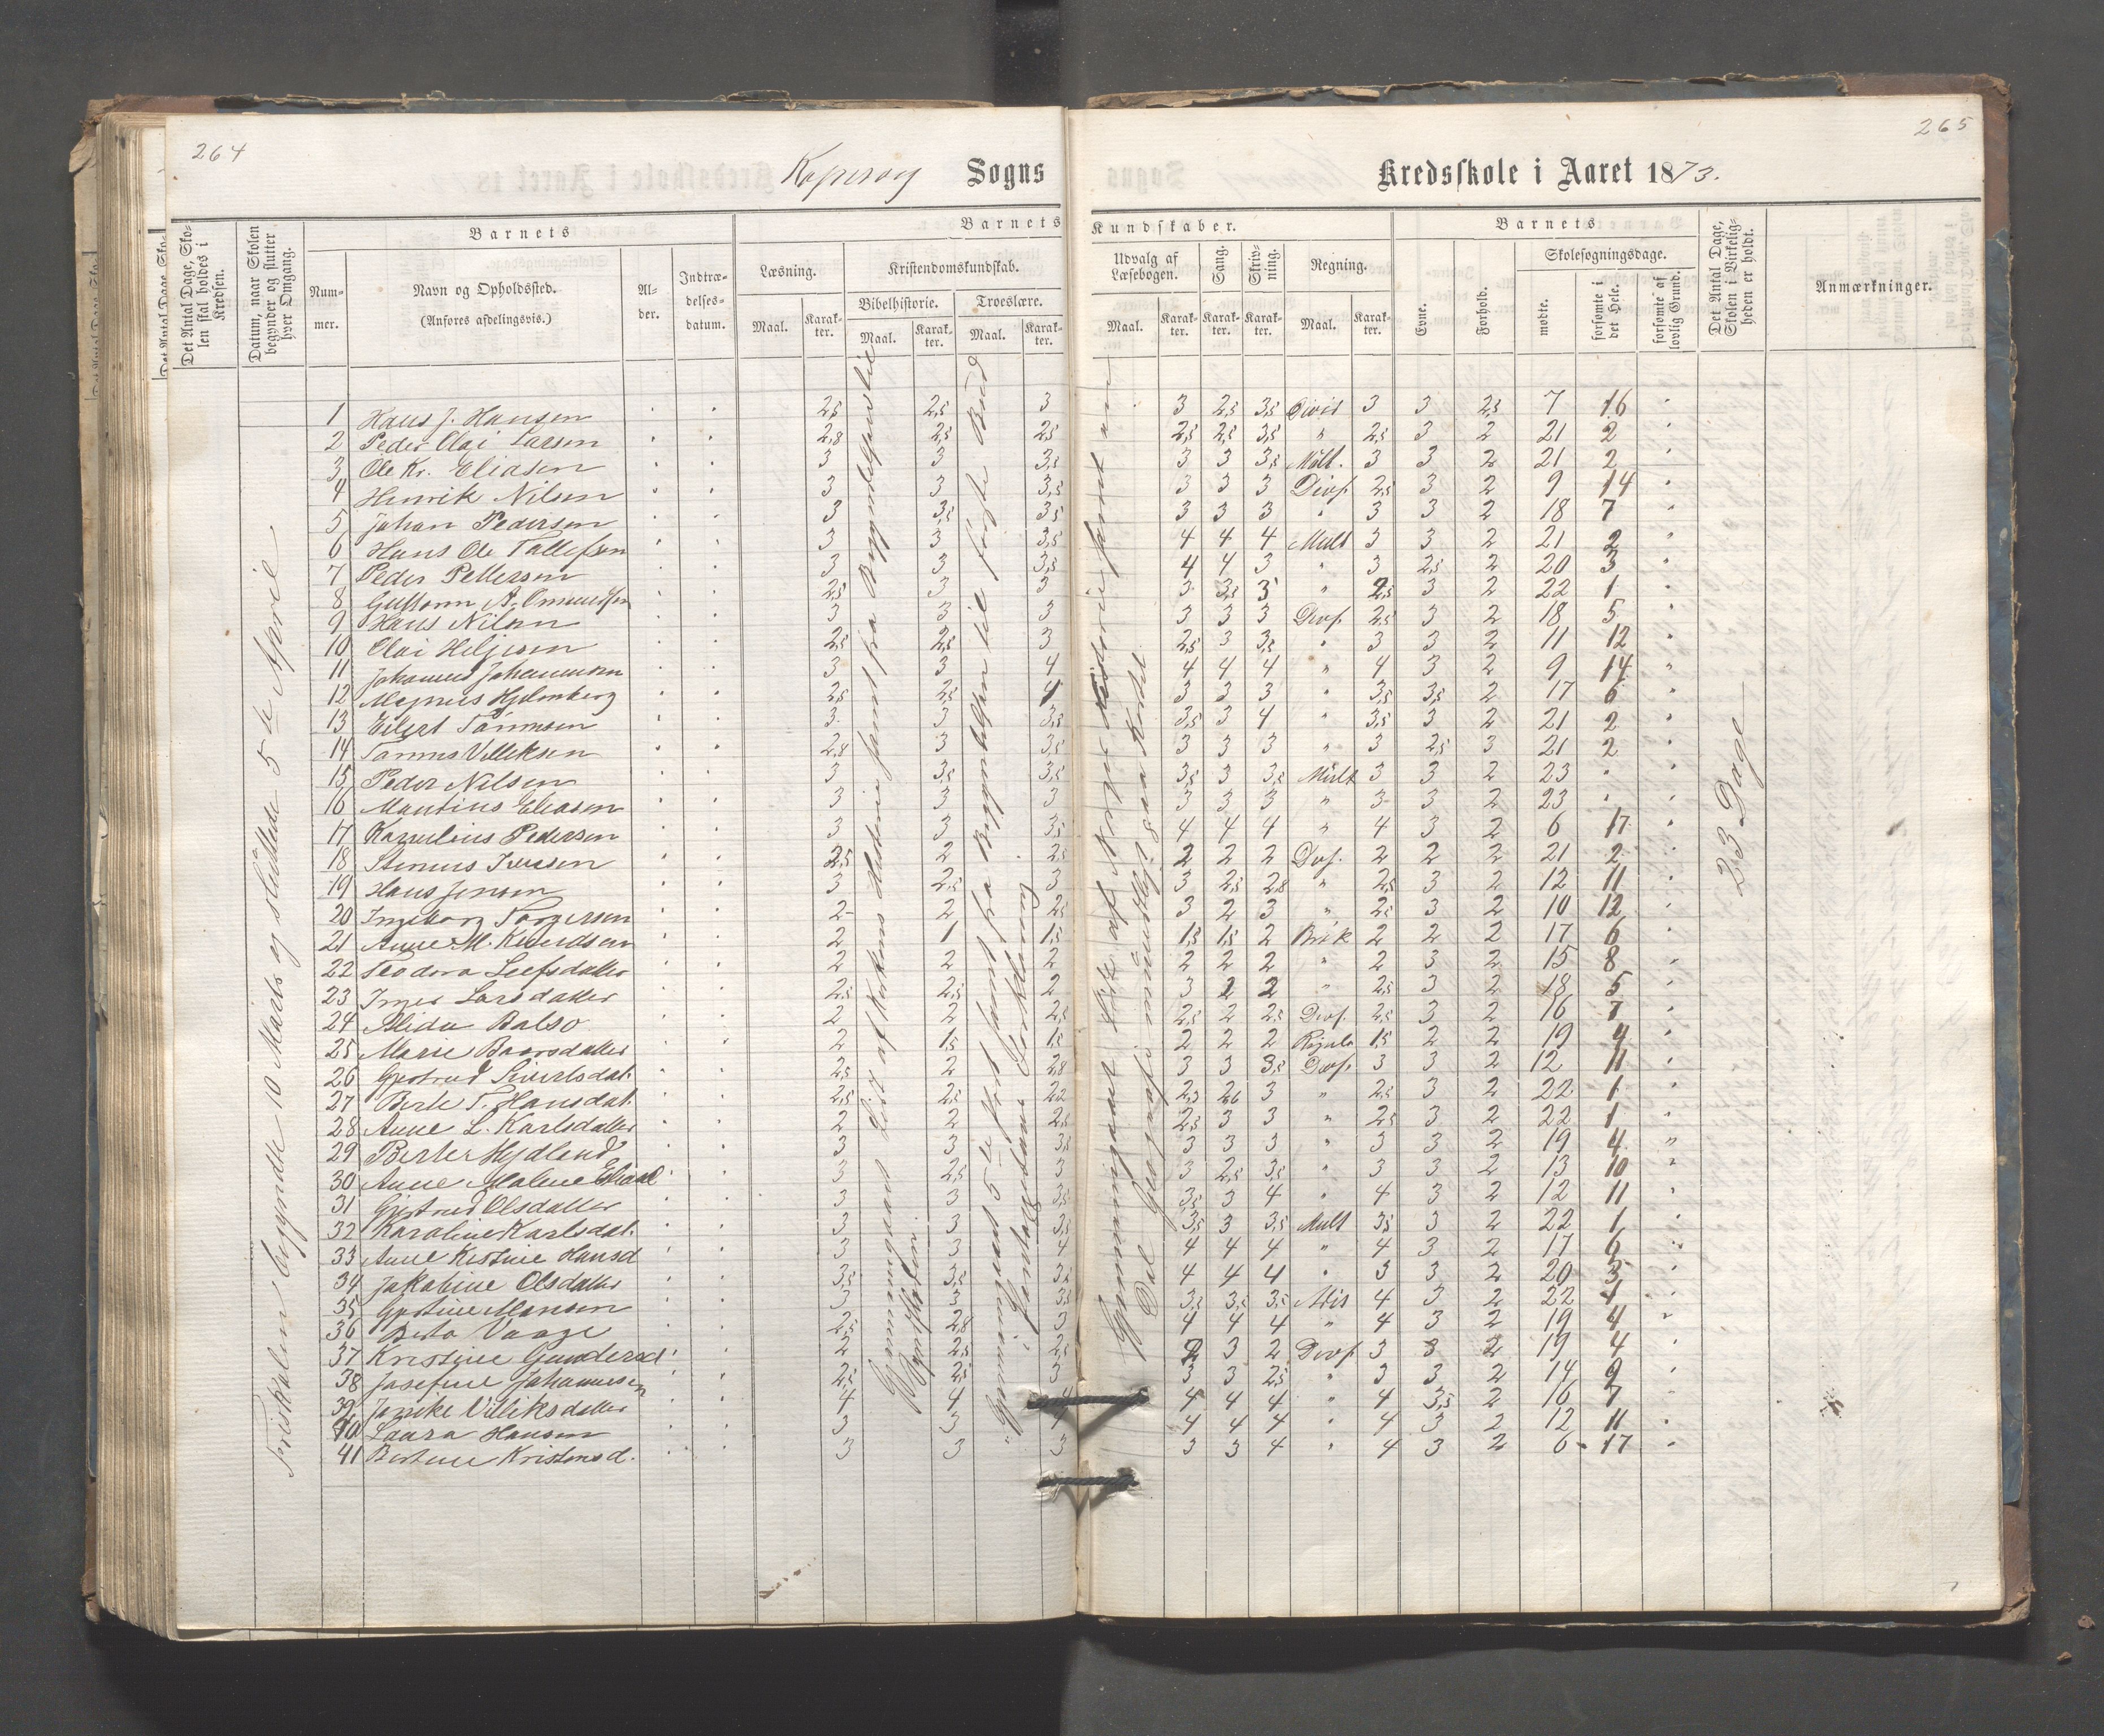 264
265
Kopervig Sogns
Kredsskole i Aaret 1873.
Det Antal Dage, Skolen skal holdes i Kredsen.
Datum, naar Skolen begynder og slutter hver Omgang.
Barnets
Nummer.
Navn og Opholdssted.
(Anføres afdelingsvis.)
Alder.
Indtrædelsesdatum.
Barnets Kundskaber.
Læsning.
Kristendomskundskab.
Bibelhistorie.
Troeslære.
Udvalg af Læsebogen.
Sang.
Skrivning.
Regning.
Maal.
Karakter.
Barnets
Evne.
Forhold.
Skolesøgningsdage.
mødte.
forsømte i det Hele.
forsømte af lovlig Grund.
Det Antal Dage, Skolen i Virkeligheden er holdt.
Anmærkninger.
1 Hans J. Hansen 2,5 2,5 3 3 2,5 3,5 Divis 3 3 2,5 7 16 "
2 Peder Olai Larsen 2,8 2,5 2,5 2,5 2,5 3,5 " 2,5 3 2 21 2 "
3 Ole Kr. Eliasen 3 3 3,5 3 3 3,5 Mult. 3 3 2 21 2 "
4 Henrik Nilsen 3 3 3,5 3 3 3 Divs. 2,5 3 2 9 14 "
5 Johan Pedersen 3 3,5 3,5 3 3 3 " 3 3 2 18 7 "
6 Hans Ole Tallefsen 3 3 3,5 4 4 4 Mult 3 3 2 21 2 "
7 Peder Pettersen 3 3 3,5 4 4 3 " 3 2,5 2 20 3 "
8 Gustav A. Omundsen 2,5 3 3 3 3,5 3 " 2,5 3 2 22 1 "
9 Hans Nilsen 3 3 3 3 3 3 Divs 2,5 3 2 18 5 "
10 Olai Heljesen 2,5 2,5 3 2,5 3 3,5 " 3 3 2 11 12 "
11 Johannes Johannesen 3 3 4 4 4 4 " 4 3 2 9 14 "
12 Magnus Hylenberg 2,5 2,5 4 3 3 3 " 3,5 3,5 2 17 6 "
13 Eilert Tønnesen 3 3 3,5 3,5 3 4 " 3,5 3 2 21 2 "
14 Tønnes Villiksen 2,8 3 3,5 3 3 3 " 3 2,5 3 21 2 "
15 Peder Nilsen 3 3,5 3,5 3,5 3 3,5 Mult 3 3 2 23 "
16 Mantius Eliasen 3 3 3 3 3 3 " 3 3 2 23 " "
17 Kornelius Pedersen 3 3 3,5 4 4 4 " 4 3 2 6 17 "
18 Stenius Iversen 2,5 2 2,5 2 2 2 Divs. 2 2 2 21 2 "
19 Hans Jensen 3 2,5 3 3 2,5 2,8 " 2,5 3 2 12 11 "
20 Ingeborg Torgersen 2 2 2,5 3 2 3 " 2,5 3 2 10 12 "
21 Anne M. Knudsen 2 1 1,5 1,5 1,5 2 Brøk 2 2 2 17 6 "
22 Teodora Leefsdatter 2 2 2 2 2 2 " 2 3 2 15 8 "
23 Inger Larsdatter 2,5 2,5 2 3 2 2 " 2,5 3 2 18 5 "
24 Alida Balso 2 2 2,5 2,5 2 2,5 Divs. 2,5 3 2 16 7 "
25 Marie Baarsdatter 2 1,5 1,5 2 2 2 Regula 1,5 2 2 19 4 "
26 Gjertrud Siverlsdat. 2,5 2 2,8 3 3 3,5 Divs. 3 3 2 12 11 "
27 Berte T. Hansdat. 2,5 2,5 2,2 2,3 2,6 3 " 2,5 3 2 22 1 "
28 Anne L. Karlsdatter 2 2 2,5 2,5 3 3 " 2,5 3 2 22 1 "
29 Berte Hydland 3 3 3,5 3 3 3 " 3 3 2 19 4 "
30 Anne Malene Eliasd 3 2,5 3 3 2,5 3,5 " 3 3 2 13 10 "
31 Gjertrud Olsdatter 3 3 3,5 3,5 3 4 " 4 3 2 12 11 "
32 Karoline Karlsdat. 3 3 3,5 3,5 3 3,5 Mult 3,5 3 2 22 1 "
33 Anne Kistine Hansd 3 3 4 4 4 4 " 4 3 2 17 6 "
34 Jakobine Olsdatter 3,5 3,5 3,5 4 4 4 " 3 3 2 20 3 "
35 Gjertine Monsen 3 3 3,5 3,5 3,5 3,5 Adis 4 3 2 22 1 "
36 Berta Vaage 2,5 2,8 3 4 4 4 " 4 3 2 19 4 "
37 Kristine Gundersd. 2 2,5 2,5 2 3 2 Divs 3 3 2 19 4 "
38 Josefine Johannesen 2,5 2,5 3 3 3 2,5 " 3 3 2 14 9 "
39 Janike Villiksdatter 4 4 4 4 4 4 " 4 3,5 2 16 7 "
40 Laura Hansen 3 3 4 4 4 4 " 4 3 2 12 11 "
41 Bertine Kristensd. 3 3 3 3 3 4 " 4 3 2 6 17 "
Friskolen begyndte 10 Marts og sluttede 5te April
Gjennemgaaet Lidt af Kirkens Historie samt fra Begyndelsen til
Gjennemgaaet 5te Part samt fra Begyndelsen til fjerde Bud
Gjentagelse samt Forklaring
Gjennemgaaet Lidt af Norges Historie samt en
Del Geografi mundtligt paa Kartet
23 Dage